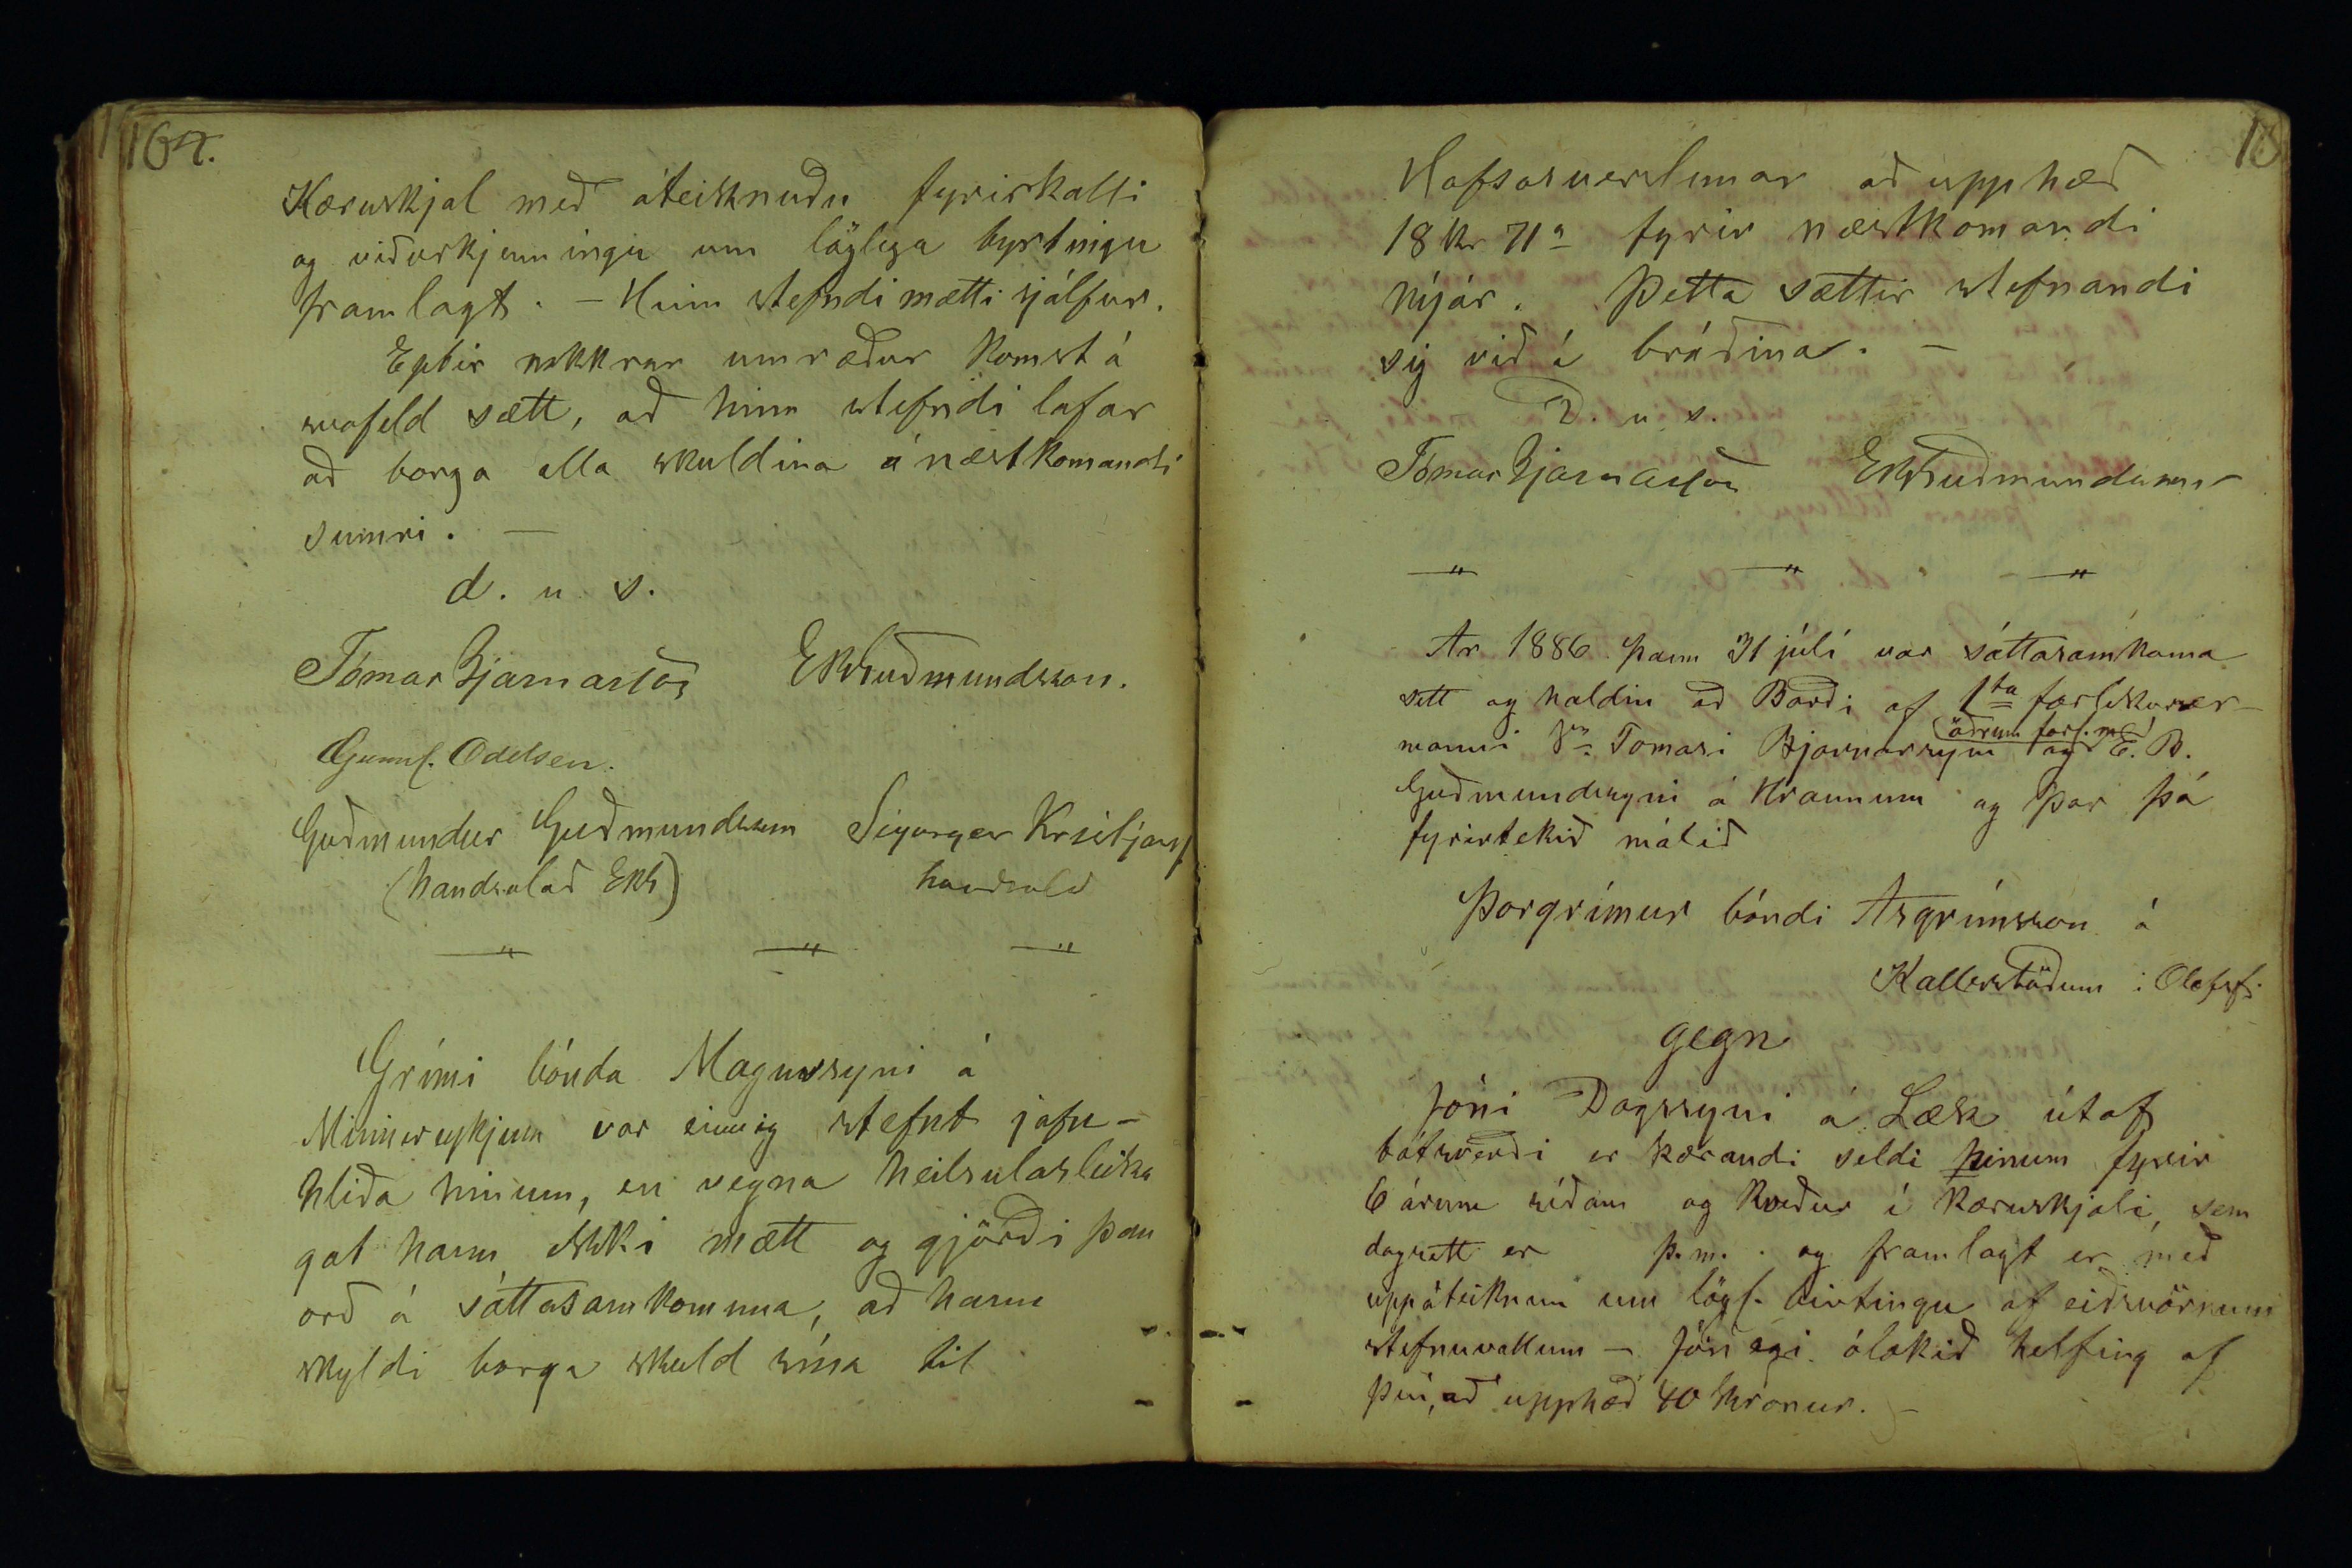 164.
Kæruskjal með áteiknuðu fyrirkalli
og viðurkjenningu um löglega byrtingu
framlagt. — Hinn stefndi mætti sjálfur.
Eptir nokkrar umræður komst á
svofeld sætt, að hinn stefndi lofar
að borga alla skuldina á næstkomandi
sumri. —
d. u. s.
Tómas Bjarnason EBGuðmundsson.
Gunnl. Oddsen.
Guðmundur Guðmundsson Sigurgeir Kristjánss
(handsalað EBG) handsalað
—„ —„ —„
Grími bónda Magnussyni á
Minnireykjum var einnig stefnt jafn-
hliða hinum, en vegna heilsulasleika
gat hann ekki mætt og gjörði þau
orð á sáttasamkomuna, að hann
skyldi borga skuld sína til
Hofsósverslunar að upphæð
18 kr 71 a fyrir næstkomandi
nýár. Þetta sættir stefnandi
sig við í bráðina. —
D. u. s.
Tómas Bjarnason EBGuðmundsson
—„ —„ —„
Ár 1886 þann 31 júlí var sáttasamkoma
sett og haldin að Barði af 1ta forlíkunar-
öðrum forl.m.
manni Sra Tomasi Bjarnarsyni og E. B.
Guðmundssyni á Hraunum og þar þá
fyrirtekið málið
Þorgrímur bóndi Asgrímsson á
Kallsstöðum í Olafsf.
gegn
Jóni Dagssyni á Læk útaf
bátsverði er kærandi seldi hinum fyrir
6 árum síðan og kveður í kæruskjali, sem
dagsett er þ.m. og framlagt er með
uppáteiknun um lögl. birtingu af eiðsvörnum
stefnuvottum — Jón eigi ólokið helfing af
því, að upphæð 40 krónur. —